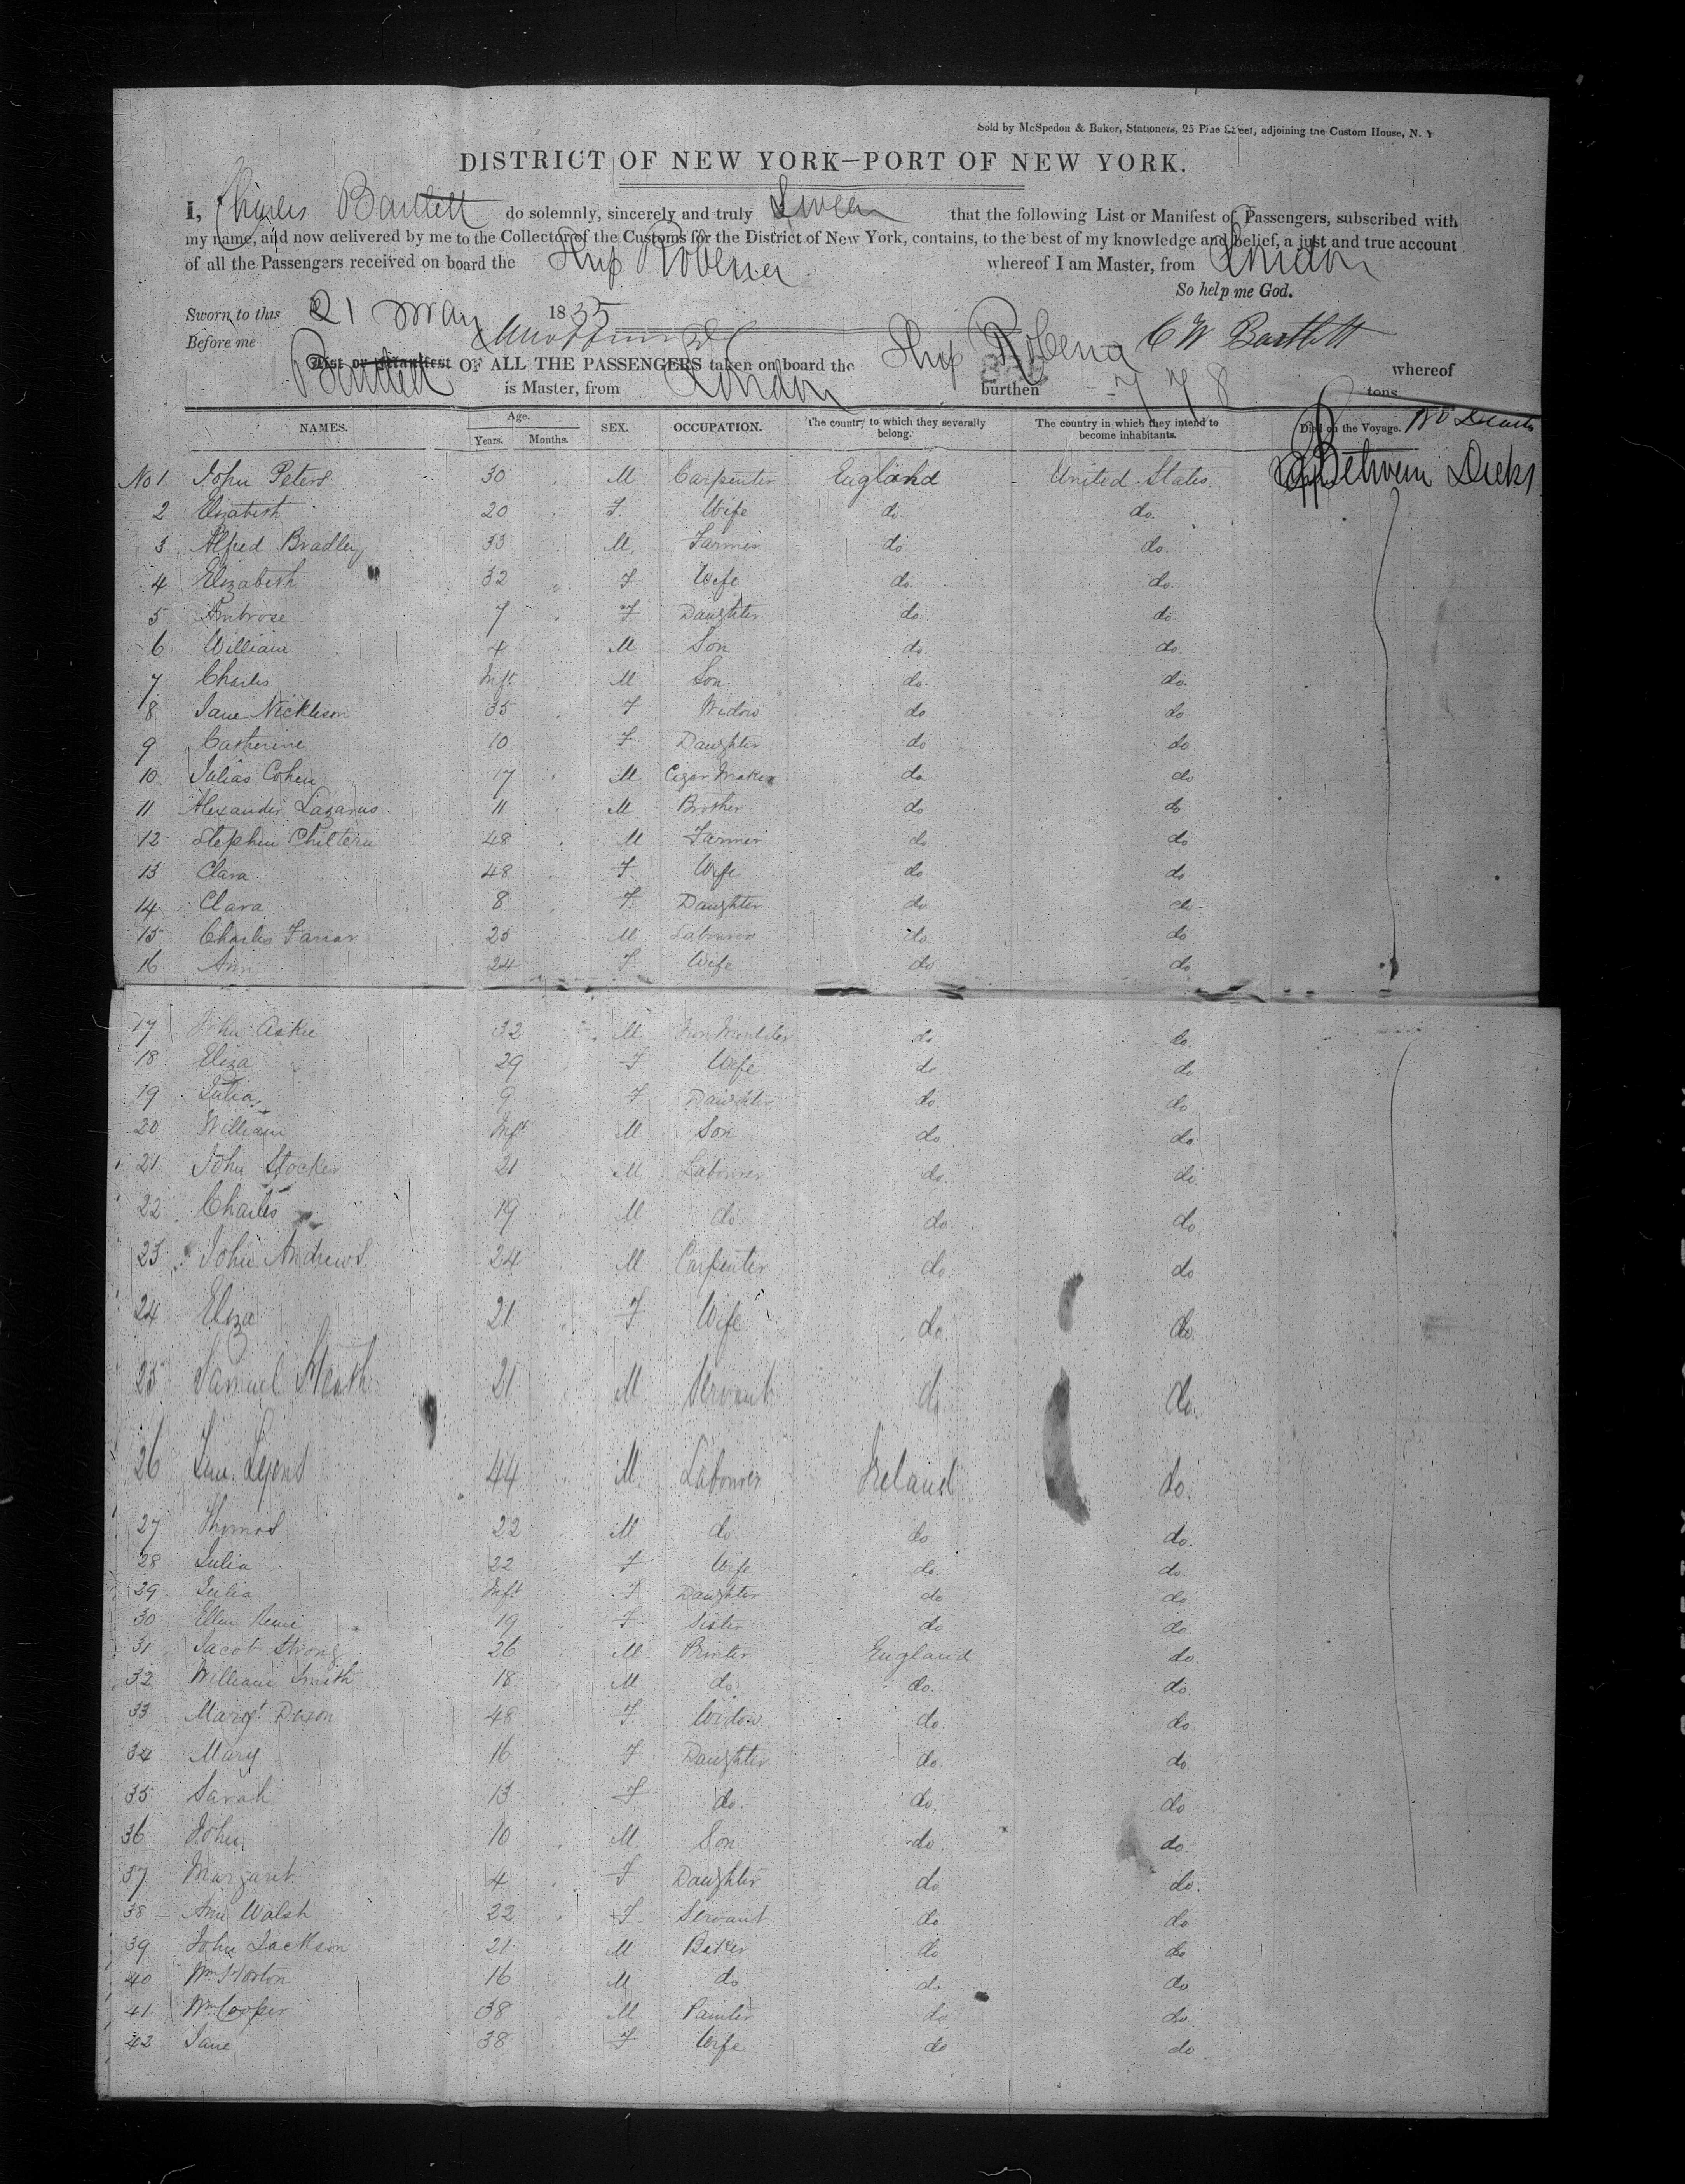 Sold by McSpedon & Baker, Stationers, 25 Pine Street, adjoining the Custom House, N. Y
DISTRICT OF NEW YORK—PORT OF NEW YORK.
I, Charles Bartlett do solemnly, sincerely and truly Swear that the following List or Manifest of Passengers, subscribed with
my name, and now delivered by me to the Collector of the Customs for the District of New York, contains, to the best of my knowledge and belief, a just and true account
of all the Passengers received on board the Ship Robena whereof I am Master, from London
So help me God.
Sworn to this 21 May 1835
Before me C W Bartlett
List or Manifest OF ALL THE PASSENGERS taken on board the Ship Robena whereof
Bartlett is Master, from London burthen 778 tons
NAMES. Age. Years. Months. SEX. OCCUPATION. The country to which they severally belong. The country in which they intend to become inhabitants. Died on the Voyage. no Deaths
No 1 John Peters 30 M Carpenter England United States. Between Decks
2 Elizabeth 20 F. Wife do. do.
3 Alfred Bradley 33 M. Farmer do do.
4 Elizabeth 32 F Wife do. do.
5 Ambrose 7 F. Daughter do do.
6 William 4 M Son do do.
7 Charles Inft M Son. do. do.
8 Jane Nickleson 35 F Widow do do
9 Catherine 10 F Daughter do do
10 Julias Cohen 17 M Cigar Maker do do
11 Alexander Lazarus 11 M Brother do do
12 Stephen Chiltern 48 M Farmer do do
13 Clara 48 F. Wife do do
14 Clara 8 F. Daughter do do
15 Charles Farrar 25 M Labourer do do
16 Ann 24 F Wife do do
17 John 32 M Iron Moulder do do.
18 Eliza 29 F Wife do do
19 Julia 9 F Daughter do do
20 William Inft M Son do do
21 John Stocker 21 M Labourer do. do.
22 Charles 19 M do. do. do.
23 John Andrews 24 M Carpenter do. do
24 Eliza 21 F Wife do. do.
25 Samuel Heath 21 M Servant do do.
26 Lyons 44 M. Labourer Ireland do.
27 Thomas 22 M do. do do.
28 Julia 22 F Wife do. do.
29 Julia Inft F Daughter do do
30 Ellen 19 F Sister do do.
31 Jacob Strong 26 M Printer England do.
32 William Smith 18 M do. do. do.
33 Margt. Dixon 48 F. Widow do. do
34 Mary 16 F Daughter do. do.
35 Sarah 13 F do. do. do
36 John 10 M. Son do do.
37 Margaret 4 F Daughter do do.
38 Ann Walsh 22 F Servant do. do
39 John Jackson 21 M Baker do do
40 Wm Horton 16 M do do do
41 Wm Cooper 38 M Painter do do.
42 Jane 38 F Wife do do.